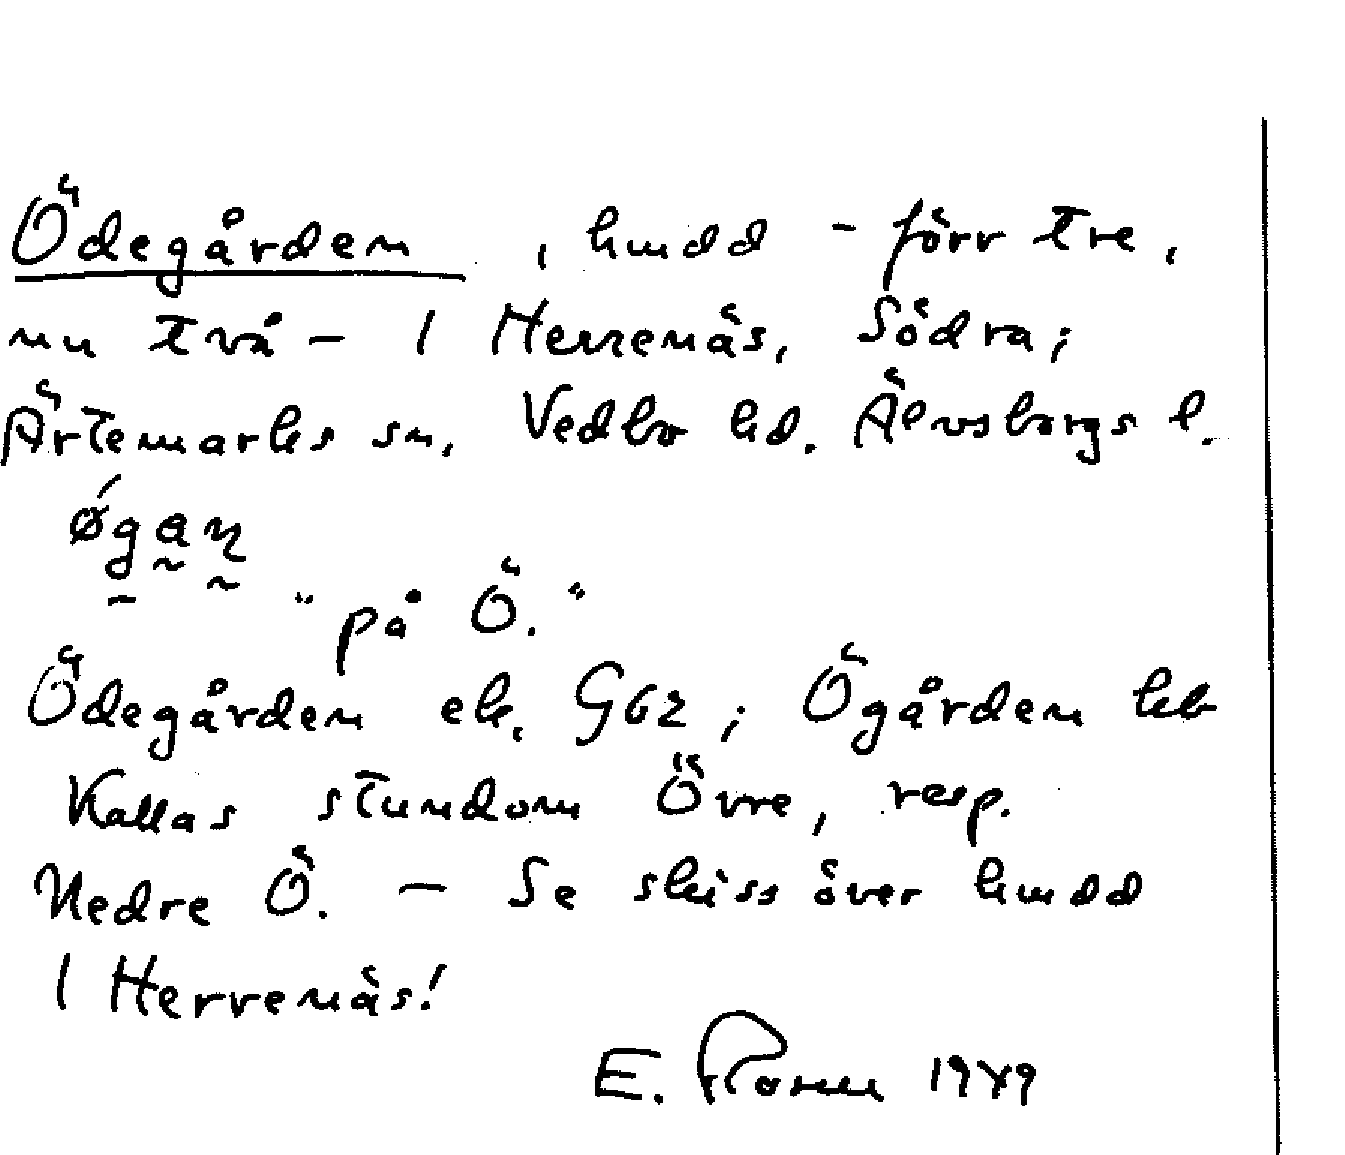 Ödegården , hmdd – förr tre,
nu två – i Herrenäs, Södra;
Ärtemarks sn, Vedbo hd. Älvsborgs l.
ǿgan
"på Ö."
Ödegården ek. G62 ; Ögården kb
Kallas stundom Övre, resp.
Nedre Ö. – Se skiss över hmdd
i Herrenäs!
E. 1949